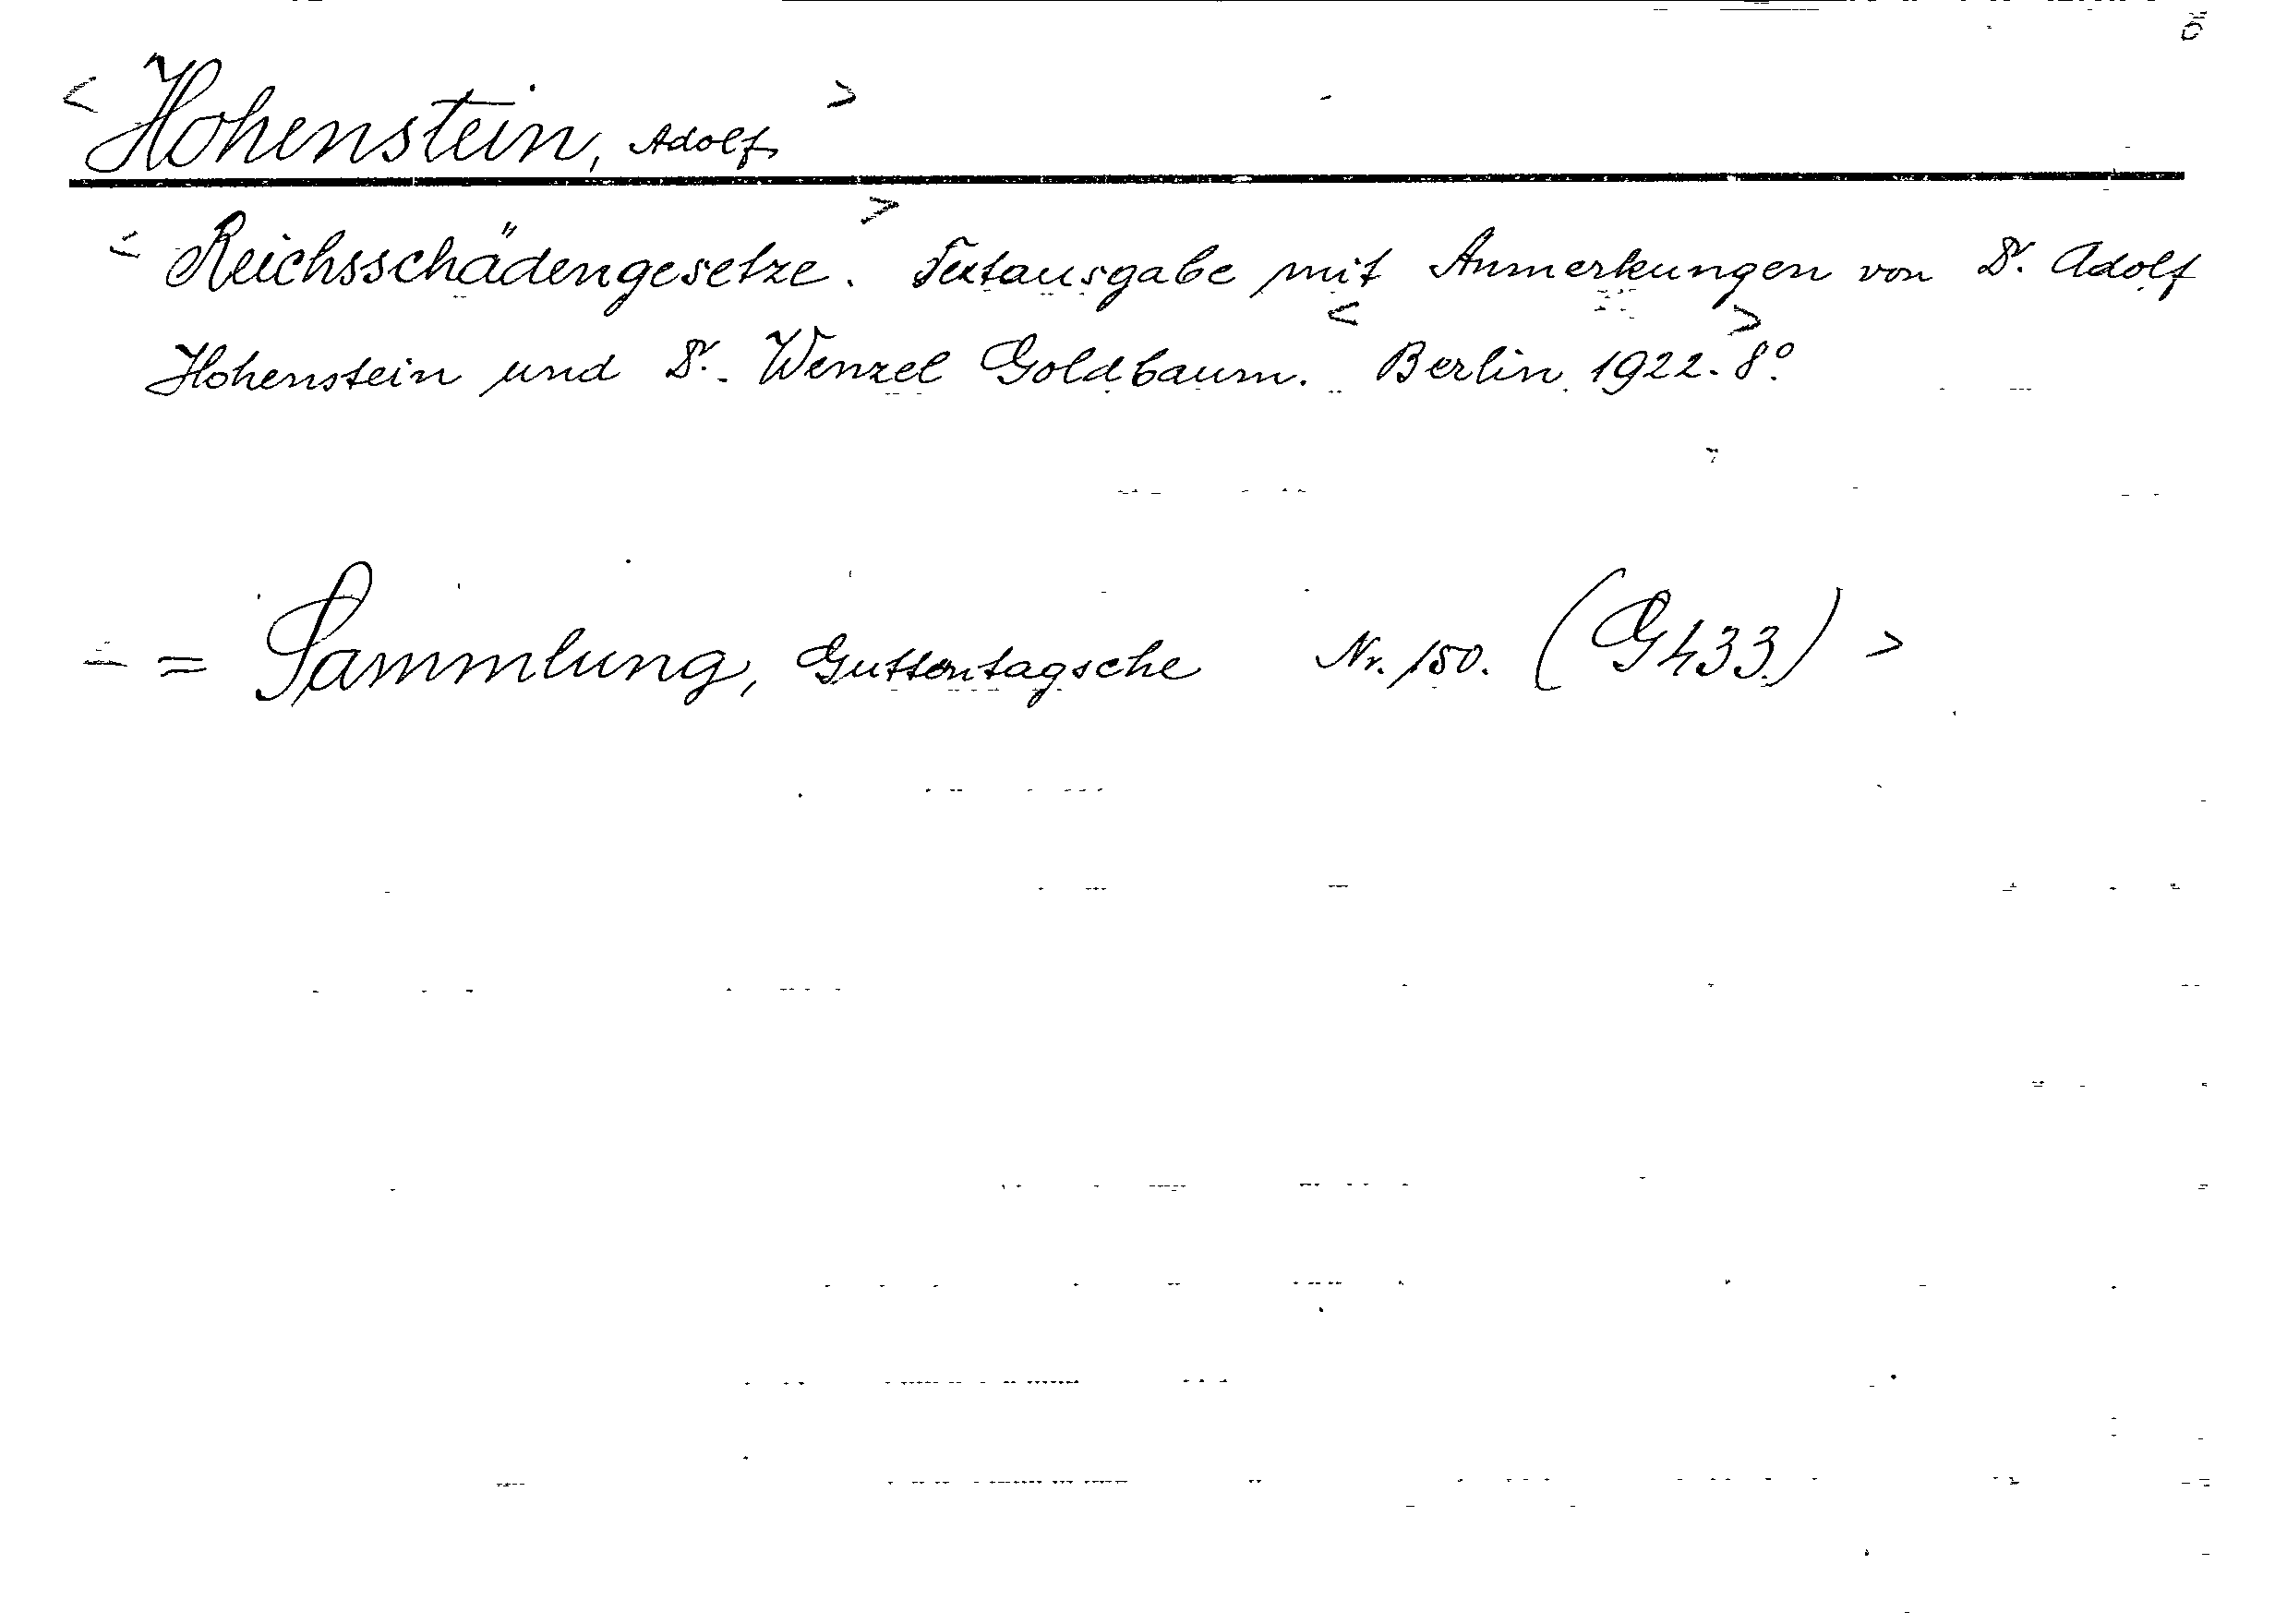 < Hohenstein, Adolf >
< Reichsschädengesetze. > Textausgabe mit Anmerkungen von Dr. Adolf
Hohenstein und Dr. Wenzel Goldbaum. < Berlin 1922. > 8°.
= Sammlung, Guttentagsche Nr. 150. (G 433) >